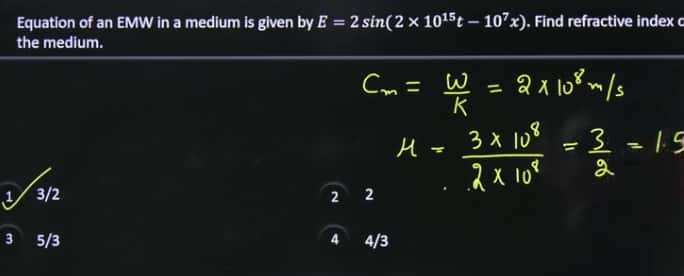 Equation of an EMW in a medium is given by E = 2 sin(2 × 10¹⁵t – 10⁷x). Find refractive index
the medium.
Cm = W/K = 2 x 10⁸ m/s
μ = 3 x 10⁸ / 2 x 10⁸ = 3/2 = 1.5
1 3/2
2 2
3 5/3
4 4/3